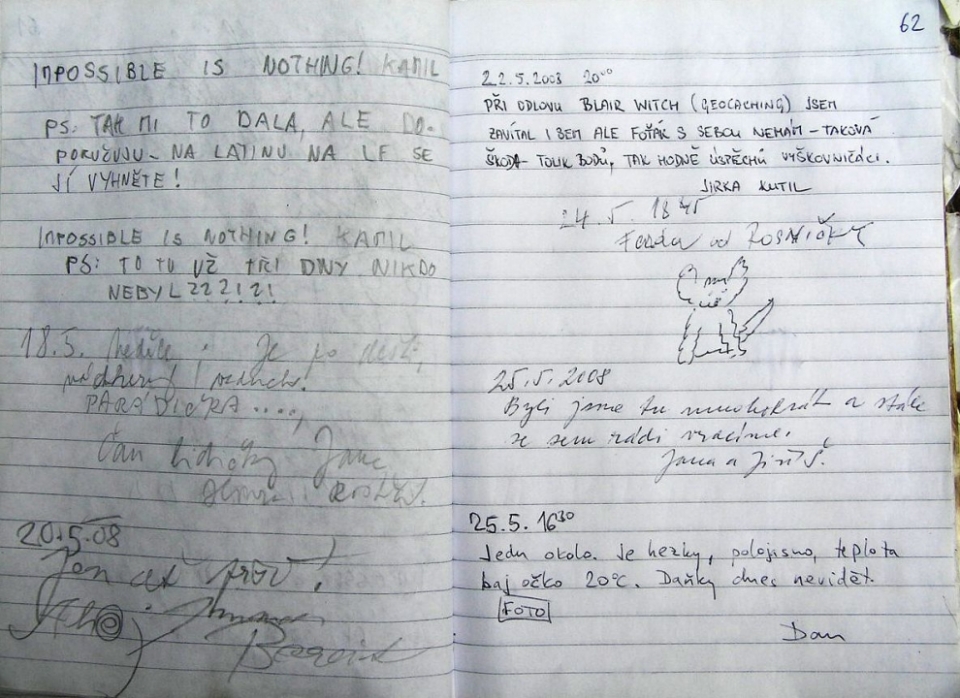 IMPOSSIBLE IS NOTHING! KAMIL
PS: TAK MI TO DALA, ALE DO-
PORUČUJU - NA LATINU NA LF SE
JÍ VYHNĚTE!
IMPOSSIBLE IS NOTHING! KAMIL
PS: TO TU UŽ TŘI DNY NIKDO
NEBYL??!?!
18.5. neděle. Je po dešti,
nádherný vzduch!
PARÁDIČKA....,
Jana
20.5.08
62
22.5.2008 20⁰⁰
PŘI ODLOVU BLAIR WITCH (GEOCACHING) JSEM
ZAVÍTAL I SEM ALE FOŤÁK S SEBOU NEMÁM - TAKOVÁ
ŠKODA TOLIK BODŮ, TAK HODNĚ ÚSPĚCHŮ VÝŠKOVNIČÁCI.
JIRKA KUTIL
24.5. 18 45
Ferda od ROSNIČKY
25.5.2008
Byli jsme tu mnohokrát a stále
se sem rádi vracíme.
Jana a Jiří Š.
25.5. 16³⁰
Jedu okolo. Je hezky, polojasno, teplota
baj očko 20°C. Daňky dnes nevidět.
FOTO
Dan